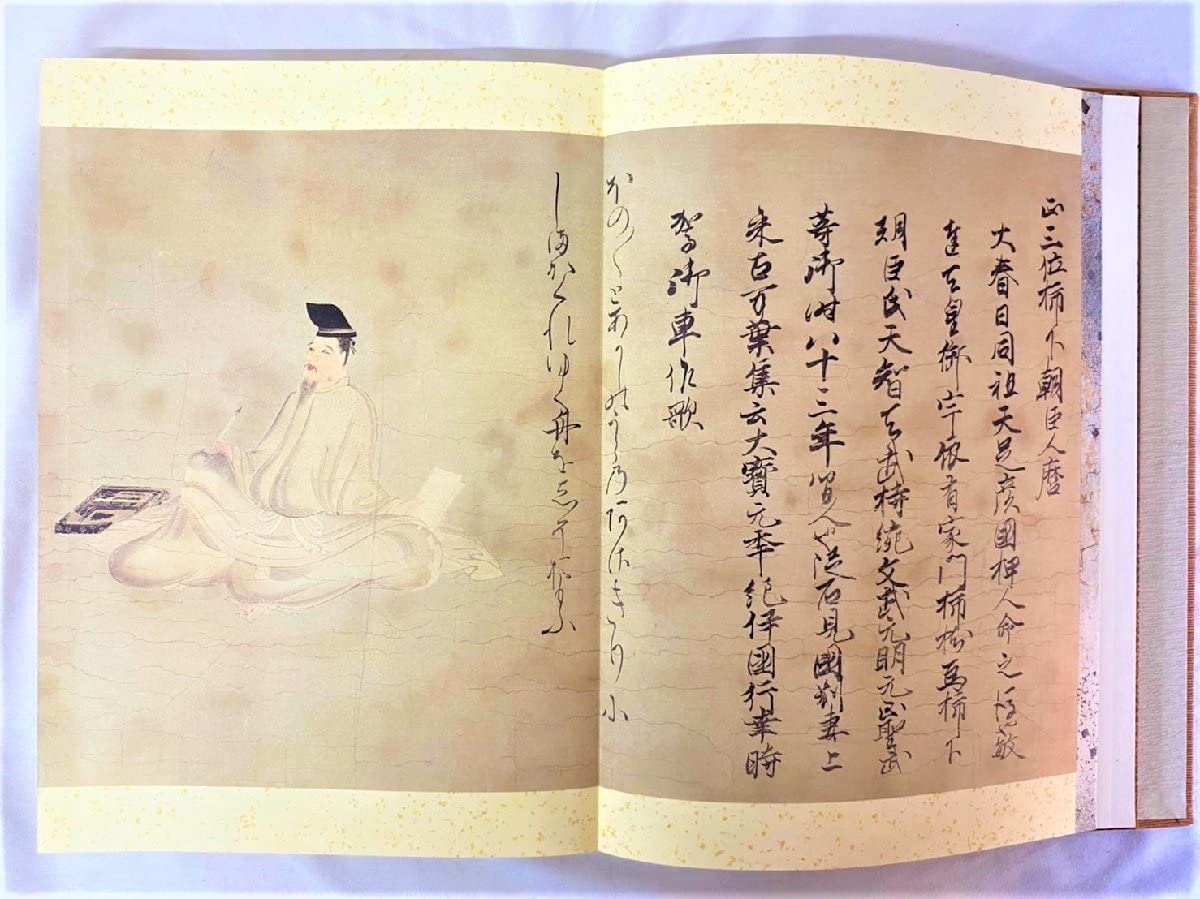 正三位柿下朝臣人麿
大春日同祖天足彦國押人命之後敏
達天皇御宇依有家門柿樹為柿下
朝臣氏天智天武持統文武元明元正聖武
等御時八十三年間人也從石見國別妻上
来古万葉集云大寶元年紀伊國行幸時
駕御車作歌
ほの〱とあかしのうらのあさきりに
しまかくれゆく舟をしそおもふ